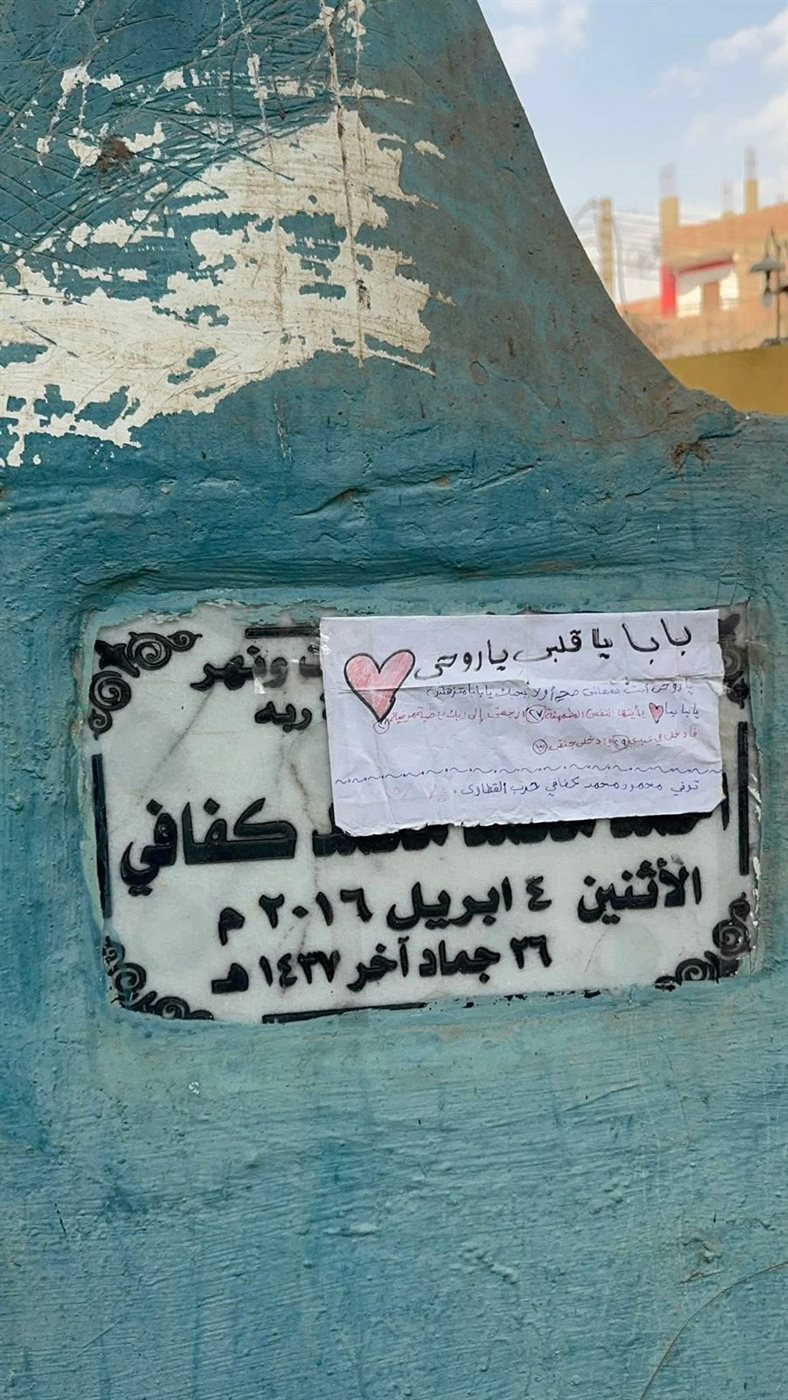 بابا يا قلبى يا روحى
يا روحى أنت
بحبك يا بابا
يا بابا يأيتها النفس المطمئنة (٢٧) ارجعى إلى ربك راضية مرضية
فادخلى في عبدى (٢٩) وادخلى جنتى (٣٠)
توفي محمود محمد كفافي حرب القطاوى.
ونهر
ربه
محمد كفافي
الأثنين ٤ ابريل ٢٠١٦ م
٢٦ جماد آخر ١٤٣٧ هـ